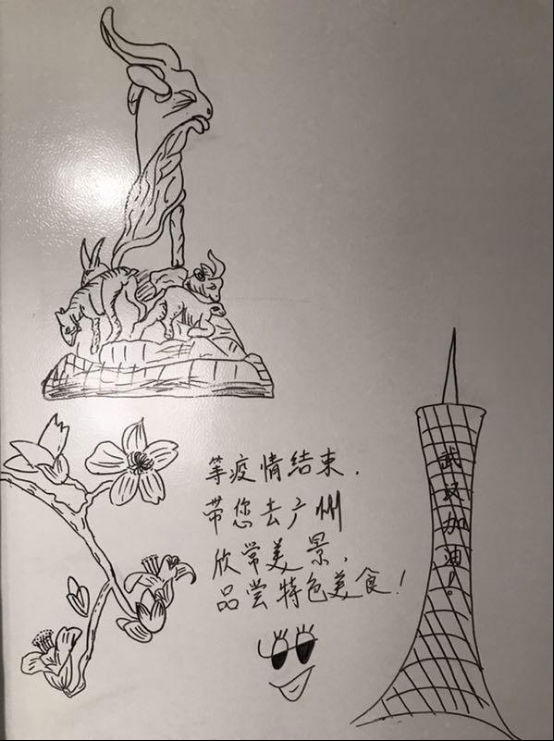 等疫情结束，
带您去广州
欣常美景，
品尝特色美食！
武汉加油！